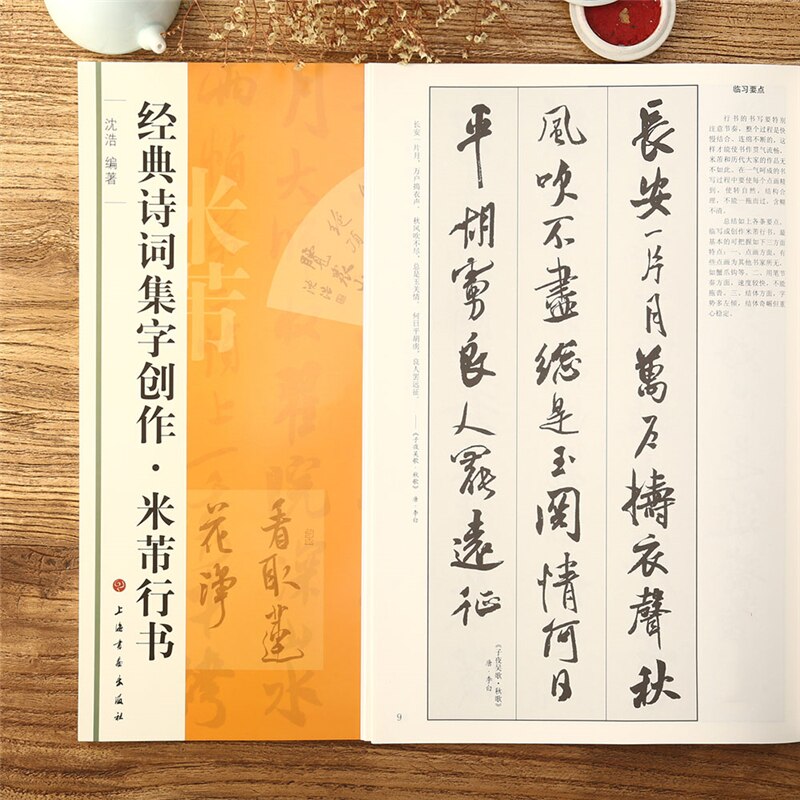 经典诗词集字创作·米芾行书
沈浩 编著
上海书画出版社
米芾
绝顶
览众山
沈浩
看取莲
花净
临习要点
行书的书写要特别
注意节奏，整个过程是快
慢结合、连绵不断的，这
样才能使书作贯气流畅。
米芾和历代大家的作品无
不如此。在一气呵成的书
写过程中要使每个点画精
到，使转自然，结构合
理，不能一拖而过，含糊
不清。
总结如上各条要点，
临写或创作米芾行书，最
基本的可把握如下三方面
特点：一、点画方面，有
些点画为其他书家所无，
如蟹爪钩等。二、用笔节
奏方面，速度较快，不能
拖沓。三、结体方面，字
势多左倾，结体奇崛但重
心稳定。
長安一片月萬户擣衣聲秋
風吹不盡総是玉関情何日
平胡虜良人罷遠征
《子夜吴歌·秋歌》
唐·李白
长安一片月，万户捣衣声。秋风吹不尽，总是玉关情。何日平胡虏，良人罢远征。
——《子夜吴歌·秋歌》 唐 李白
9